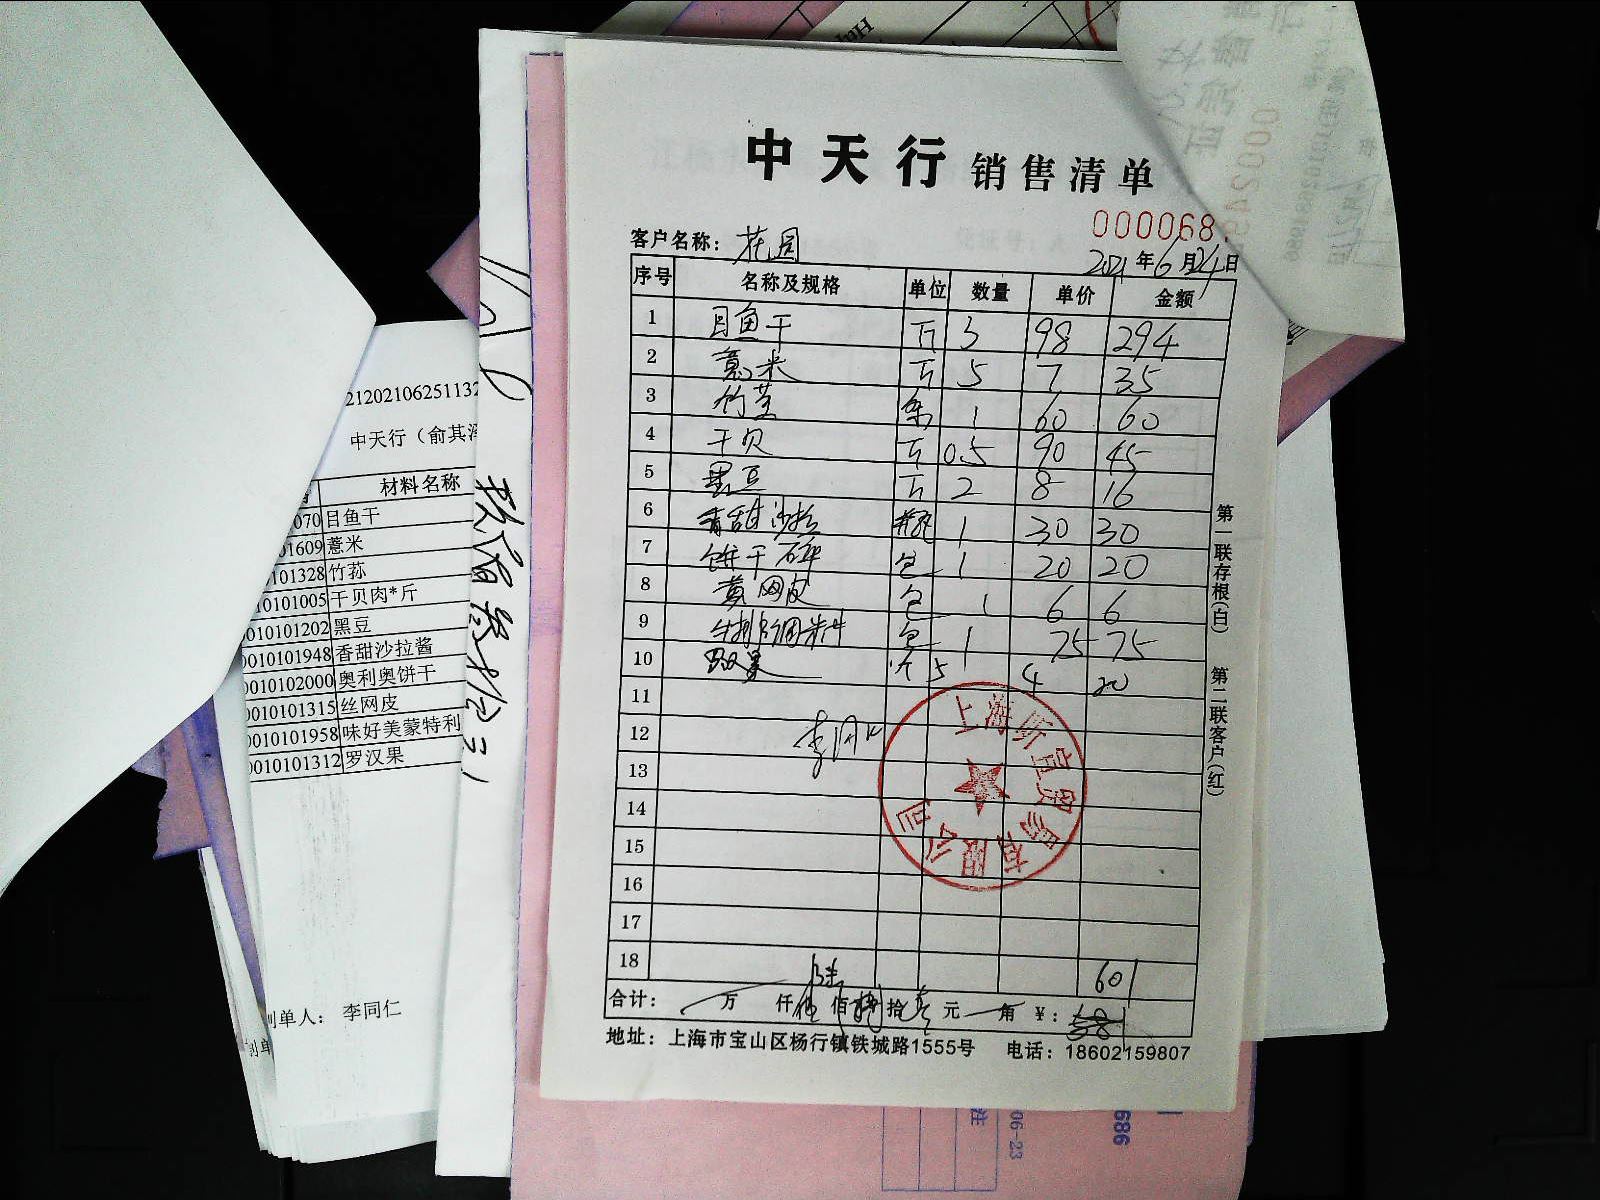 中天行 销售清单
000068
客户名称: 花园
2021年6月24日
序号 名称及规格 单位 数量 单价 金额
1 目鱼干 斤 3 98 294
2 薏米 斤 5 7 35
3 竹荪 条 1 60 60
4 干贝 斤 0.5 90 45
5 黑豆 斤 2 8 16
6 香甜沙拉 瓶 1 30 30
7 饼干碎 包 1 20 20
8 黄网皮 包 1 6 6
9 牛排调料 包 1 75 75
10 罗汉果 个 5 4 20
11
12 李同仁
13
14
15
16
17
18 601
合计: 万 仟 陆 佰 拾 壹 元 角 ¥:
地址: 上海市宝山区杨行镇铁城路1555号 电话: 18602159807
第一联存根(白) 第二联客户(红)
上海 宜贸易有限公司
2120210625113
中天行(俞其
材料名称
070 目鱼干
01609 薏米
101328 竹荪
10101005 干贝肉*斤
010101202 黑豆
0010101948 香甜沙拉酱
0010102000 奥利奥饼干
0010101315 丝网皮
0010101958 味好美蒙特利
0010101312 罗汉果
制单人: 李同仁
000249
06-23
686
注